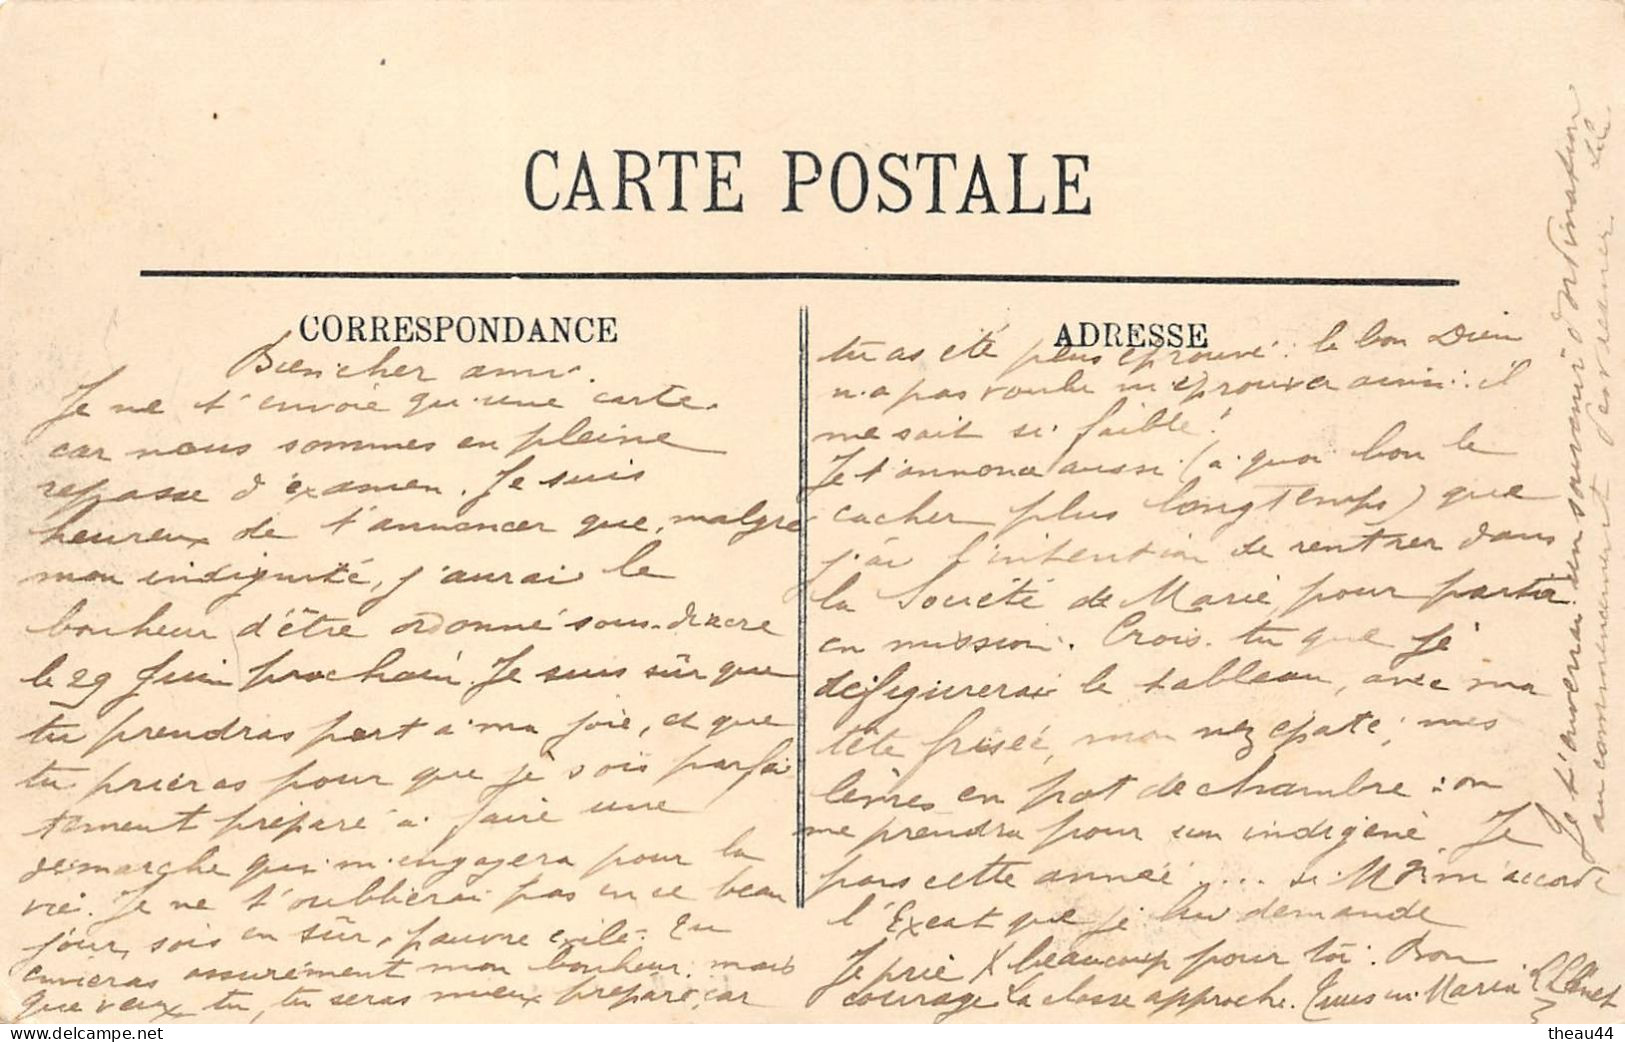 CARTE POSTALE
CORRESPONDANCE
Bien cher ami.
Je ne t'envoie qu'une carte
car nous sommes en pleine
repasse d'examen. Je suis
heureux de t'annoncer que, malgré
mon indignité, j'aurai le
bonheur d'être ordonné sous-diacre
le 29 Juin prochain. Je suis sûr que
tu prendras part à ma joie, et que
tu prieras pour que je sois parfai
tement préparé à faire une
démarche qui m'engagera pour la
vie. Je ne t'oublierai pas en ce beau
jour, sois en sûr, pauvre exilé. Tu
envieras assurément mon bonheur: mais
que veux-tu, tu seras mieux préparé, car
ADRESSE
tu as été plus éprouvé: le bon Dieu
n'a pas voulu m'éprouver ainsi: il
me sait si faible!
Je t'annonce aussi (à quoi bon le
cacher plus longtemps) que
j'ai l'intention de rentrer dans
la Société de Marie pour partir
en mission. Crois-tu que je
défigurerai le tableau, avec ma
tête frisée, mon nez épaté, mes
lèvres en pot de chambre: on
me prendra pour un indigène. Je
pars cette année .... si Mgr m'accorde
l'Exeat que je lui demande
Je prie beaucoup pour toi. Bon
courage la classe approche. Tuus in Maria
Je t'enverrai un souvenir d'ordination
au commencement
theau44